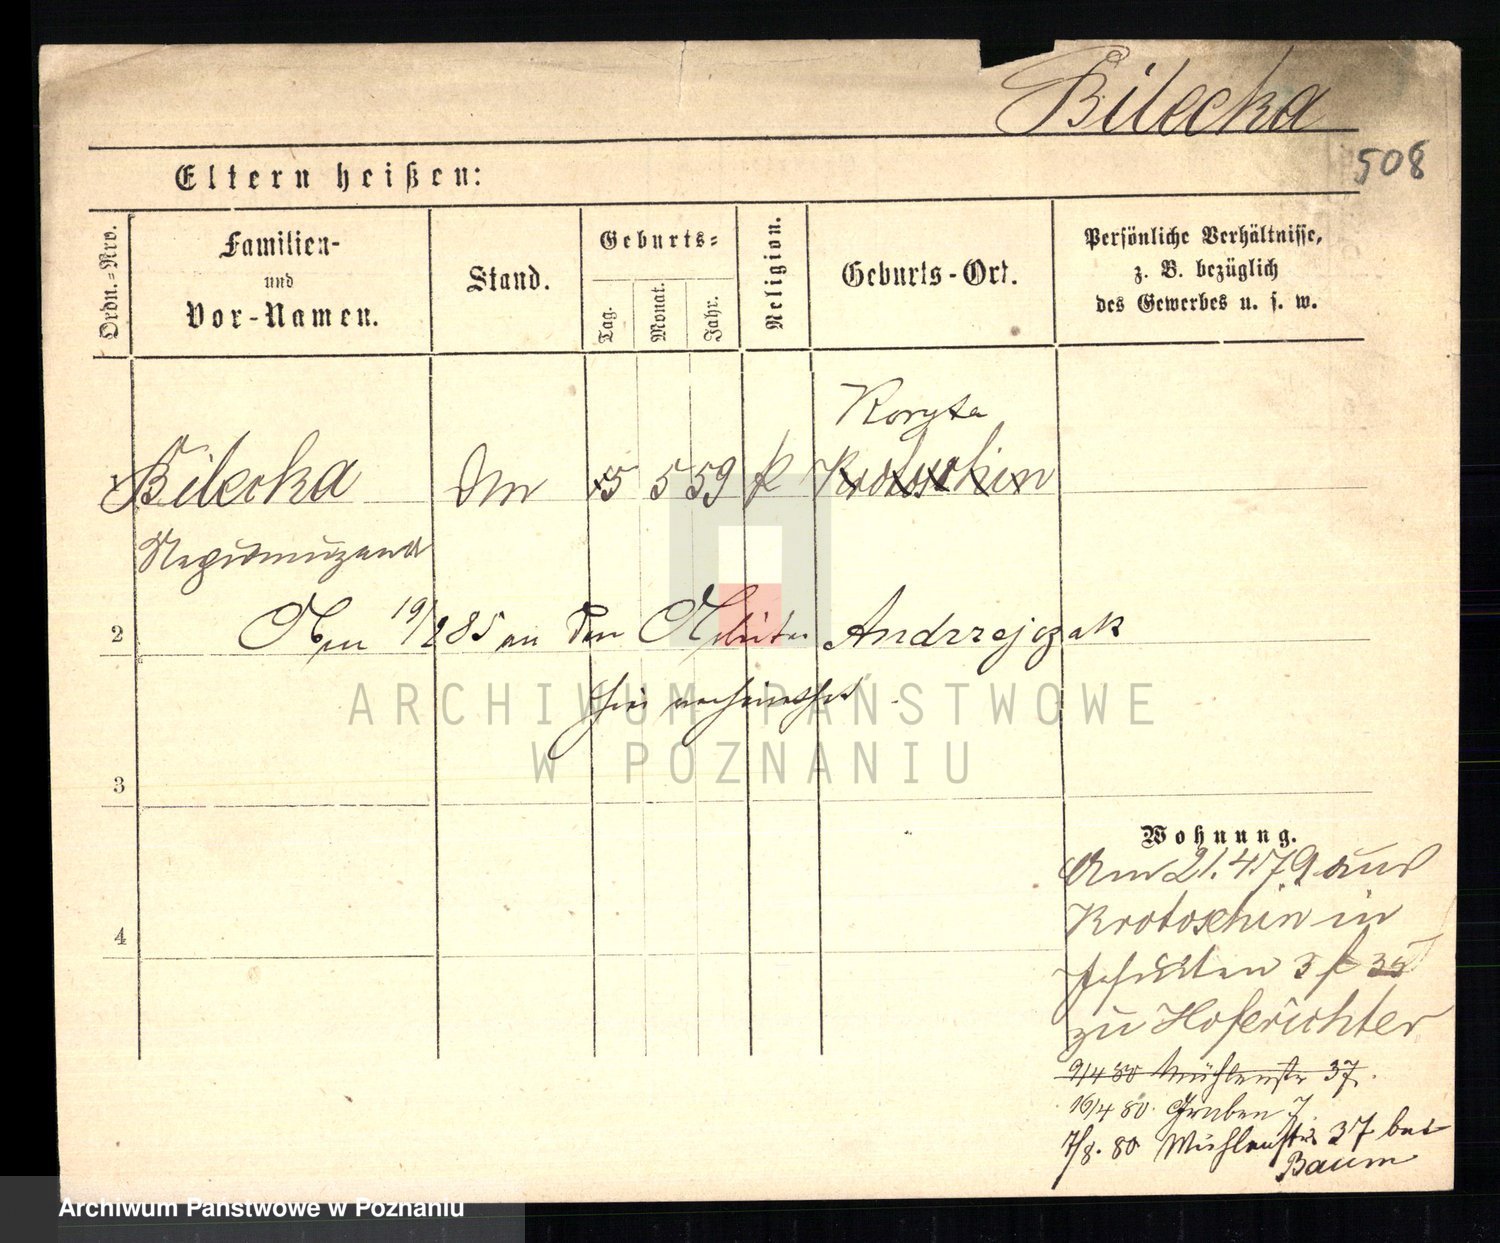 Bilecka
508
Eltern heißen:
Ordn.=Nro.
Familien-
und
Vor-Namen.
Stand.
Geburts=
Tag.
Monat.
Jahr.
Religion.
Geburts-Ort.
Persönliche Verhältnisse,
z. B. bezüglich
des Gewerbes u. s. w.
Koryta
1 Bilecka 5 5 59 k Krotoschin
2
19/2 85 an den Andrzejczak
hier verheirathet
3
4
Wohnung.
Am 21.4 79 aus
Krotoschin in
Jesuiten 3 f 35
zu Hoferichter
9/4 80 Mühlenstr 37.
16/4 80 Graben 7
7/8. 80 Mühlenstr 37 bei
Baum
ARCHIWUM PAŃSTWOWE
W POZNANIU
Archiwum Państwowe w Poznaniu